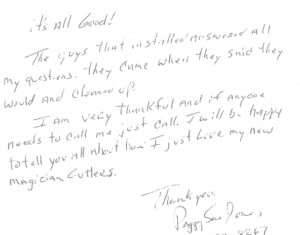 it's All Good!
The guys that installed answered All
my questions. They came when they said they
would and cleaned up.
I am very thankful and if anyone
needs to call me just call. I will be happy
to tell you all about how I just love my new
magician Gutters.
Thank you.
Peggy Sue Jones,
8267